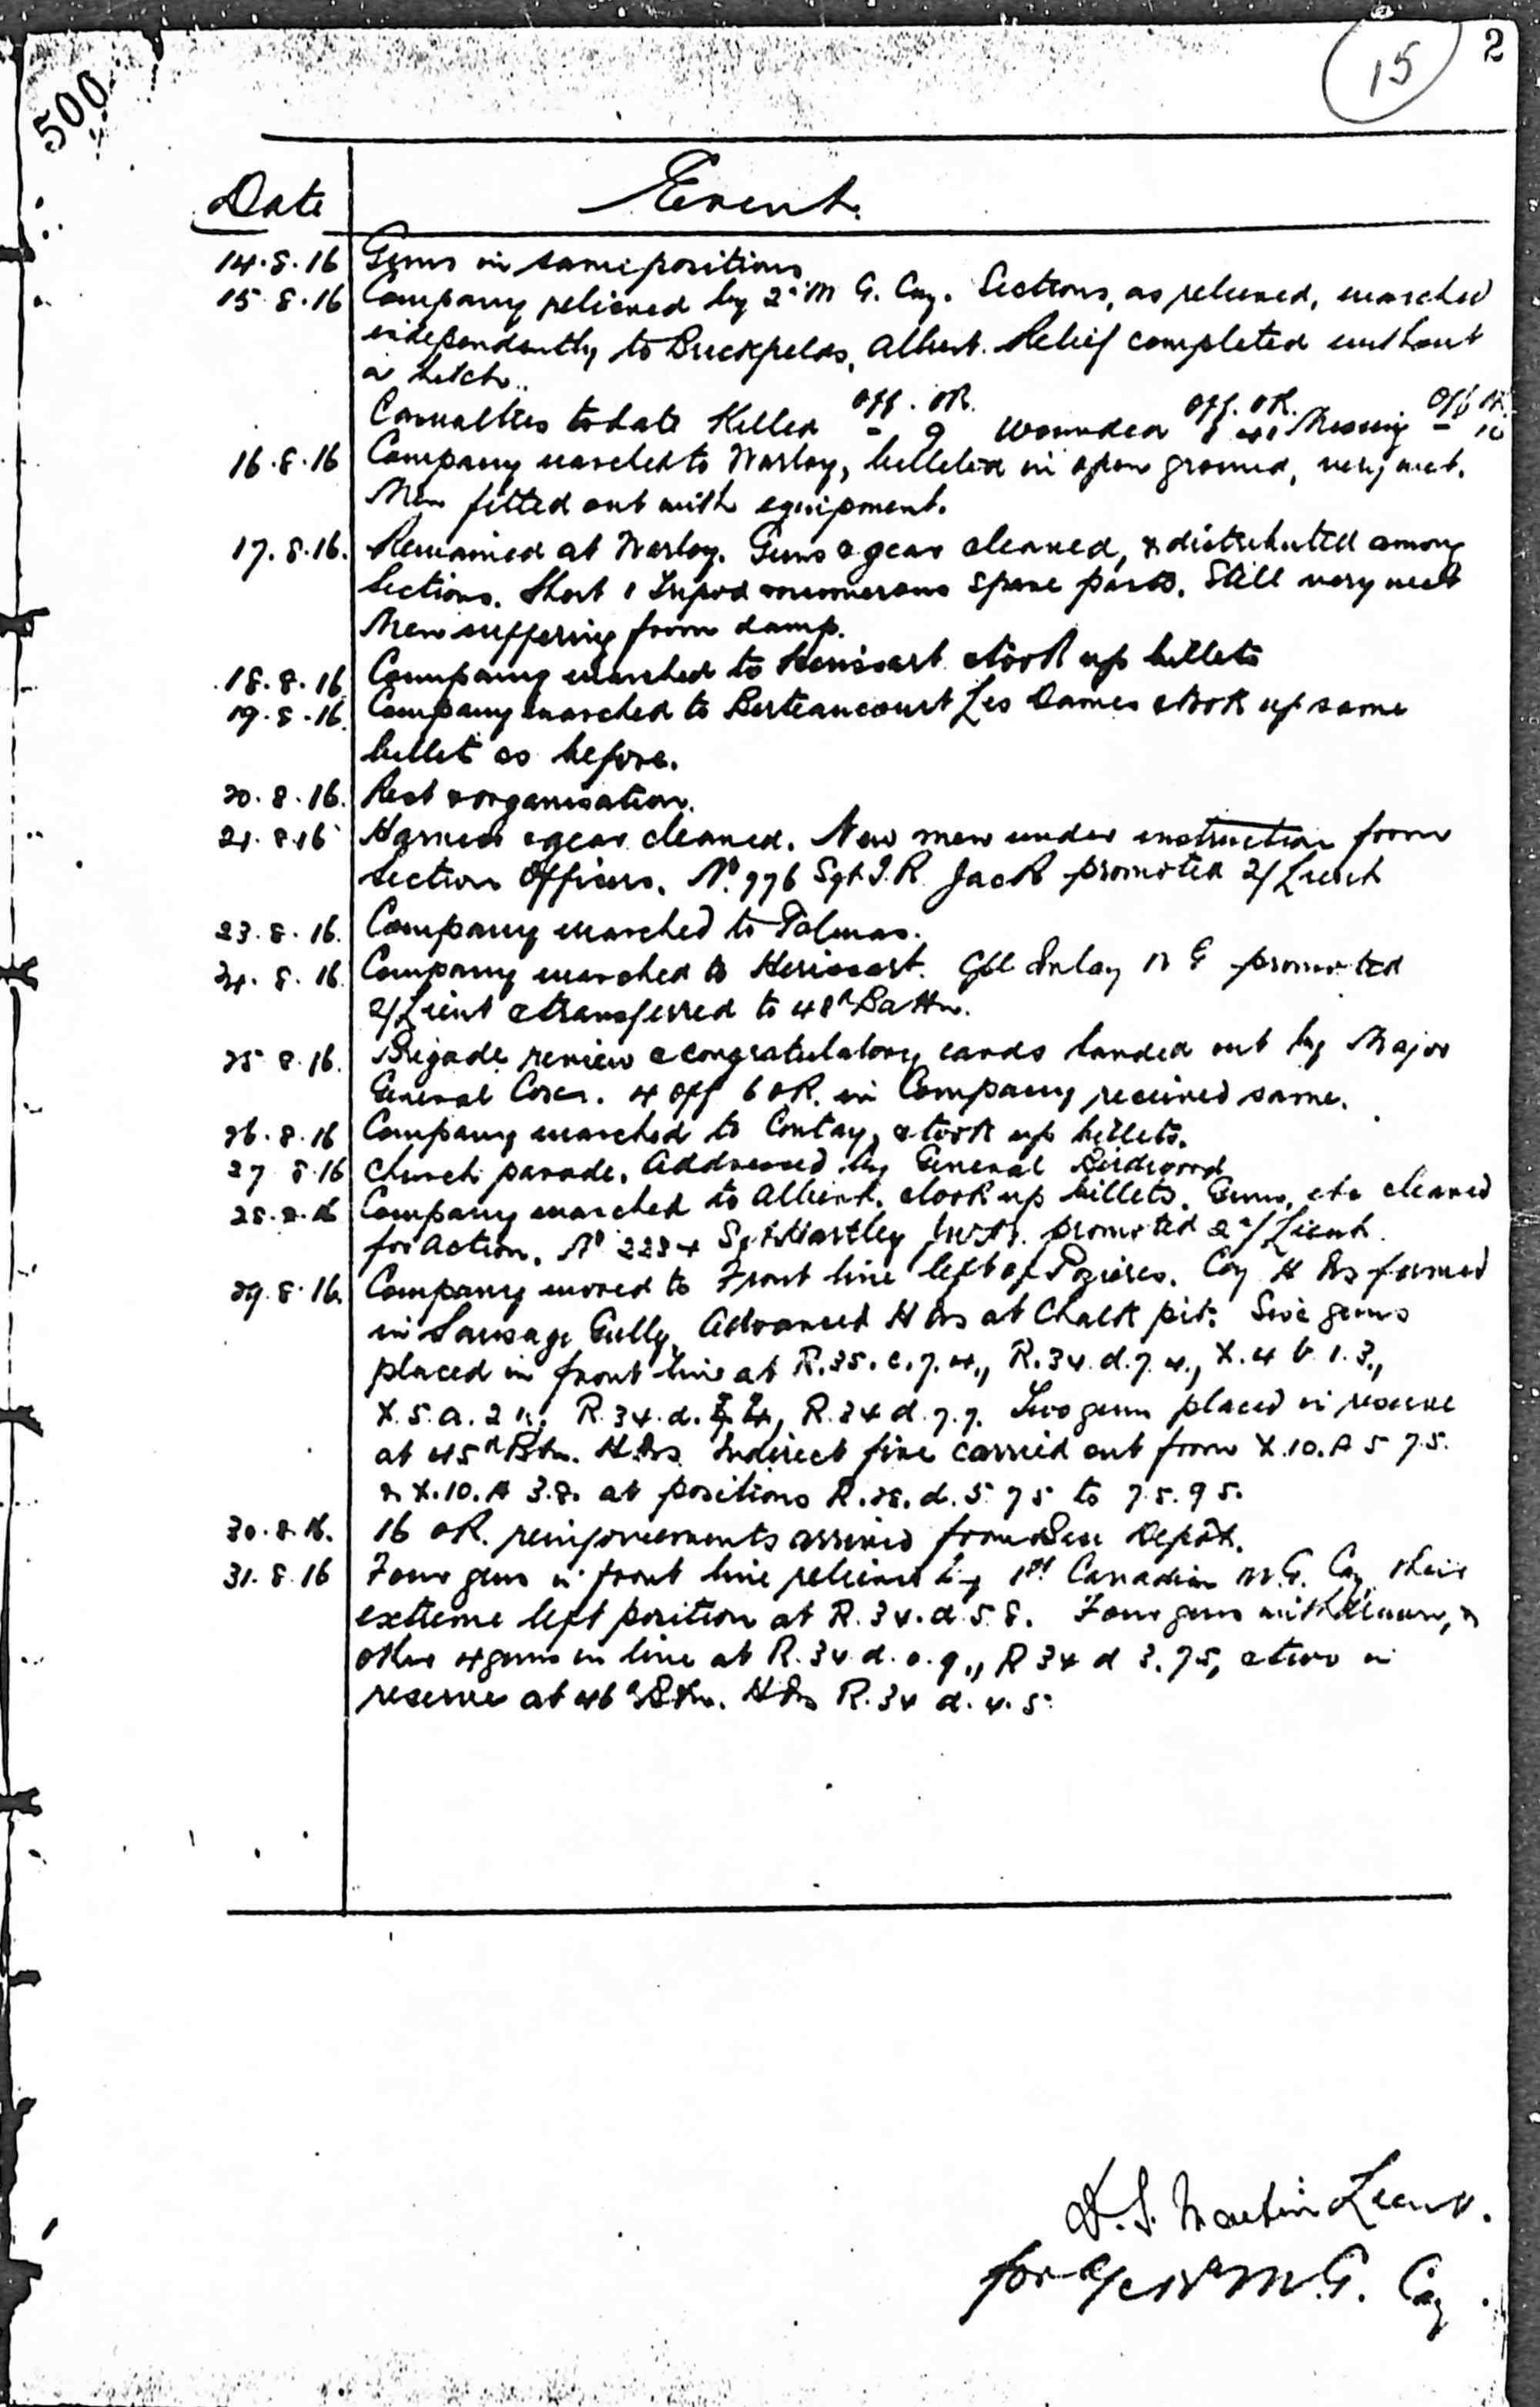 15
2
500
Date Event.
14.8.16 Guns in same positions
15.8.16 Company relieved by 2nd M G. Coy. Sections, as relieved, marched
independently to Brickfields, Albert. Relief completed without
a hitch.
Off. OR. Off. OR. Off OR.
Casualties to date Killed - 9 Wounded 1 41 Missing - 10
16.8.16 Company marched to Warloy, billeted in open ground, very wet.
Men fitted out with equipment.
17.8.16. Remained at Warloy. Guns & gear cleaned, & distributed among
Sections. Short 1 Tripod & numerous spare parts. Still very wet
Men suffering from damp.
18.8.16 Company marched to Herissart & took up billets
19.8.16. Company marched to Berteaucourt Les Dames & took up same
billet as before.
20.8.16. Rest & organisation.
21.8.16 Harness & gear cleaned. New men under instruction from
Section Officers. No. 776 Sgt J.R. Jack promoted 2/Lieut
23.8.16. Company marched to Talmas.
24.8.16 Company marched to Herissart. promoted
2/Lieut & transferred to 48th Battn.
25.8.16. Brigade review & congratulatory cards handed out by Major
General Cox. 4 Off 6 OR. in Company received same.
26.8.16 Company marched to Contay, & took up billets.
27 8.16 Church parade. Addressed by General Birdwood
28.8.16 Company marched to Albert. & took up billets. Guns, etc cleaned
for action. No 2234 Sgt Hartley promoted 2nd/Lieut.
29.8.16. Company moved to Front line left of Pozieres. Coy H Qrs formed
in Sausage Gully, Advanced H Qrs at Chalk pit. Six guns
placed in front line at R.35.c.7.4., R.34.d.7.4., X.4 b 1.3.,
X.5.a.2 R.34.d. R.34 d.7.7. Two guns placed in reserve
at 45th Btn. H.Qrs Indirect fire carried out from X.10.A 5 7.5.
& X.10.A 3.8. at positions R.28.d.5 75 to 7.5.95.
30.8.16. 16 OR. reinforcements arrived from Base Depôt.
31.8.16 Four guns in front line relieved by 1st Canadian M.G. Coy, their
extreme left position at R.34.d.5.8. Four guns withdrawn, &
other 4 guns in line at R.34.d.0.9., R 34 d 3.75, & two in
reserve at 46th Btn. H Qrs R.34 d.4.5.
D.S. Martin Lieut.
for O/c M.G. Coy.